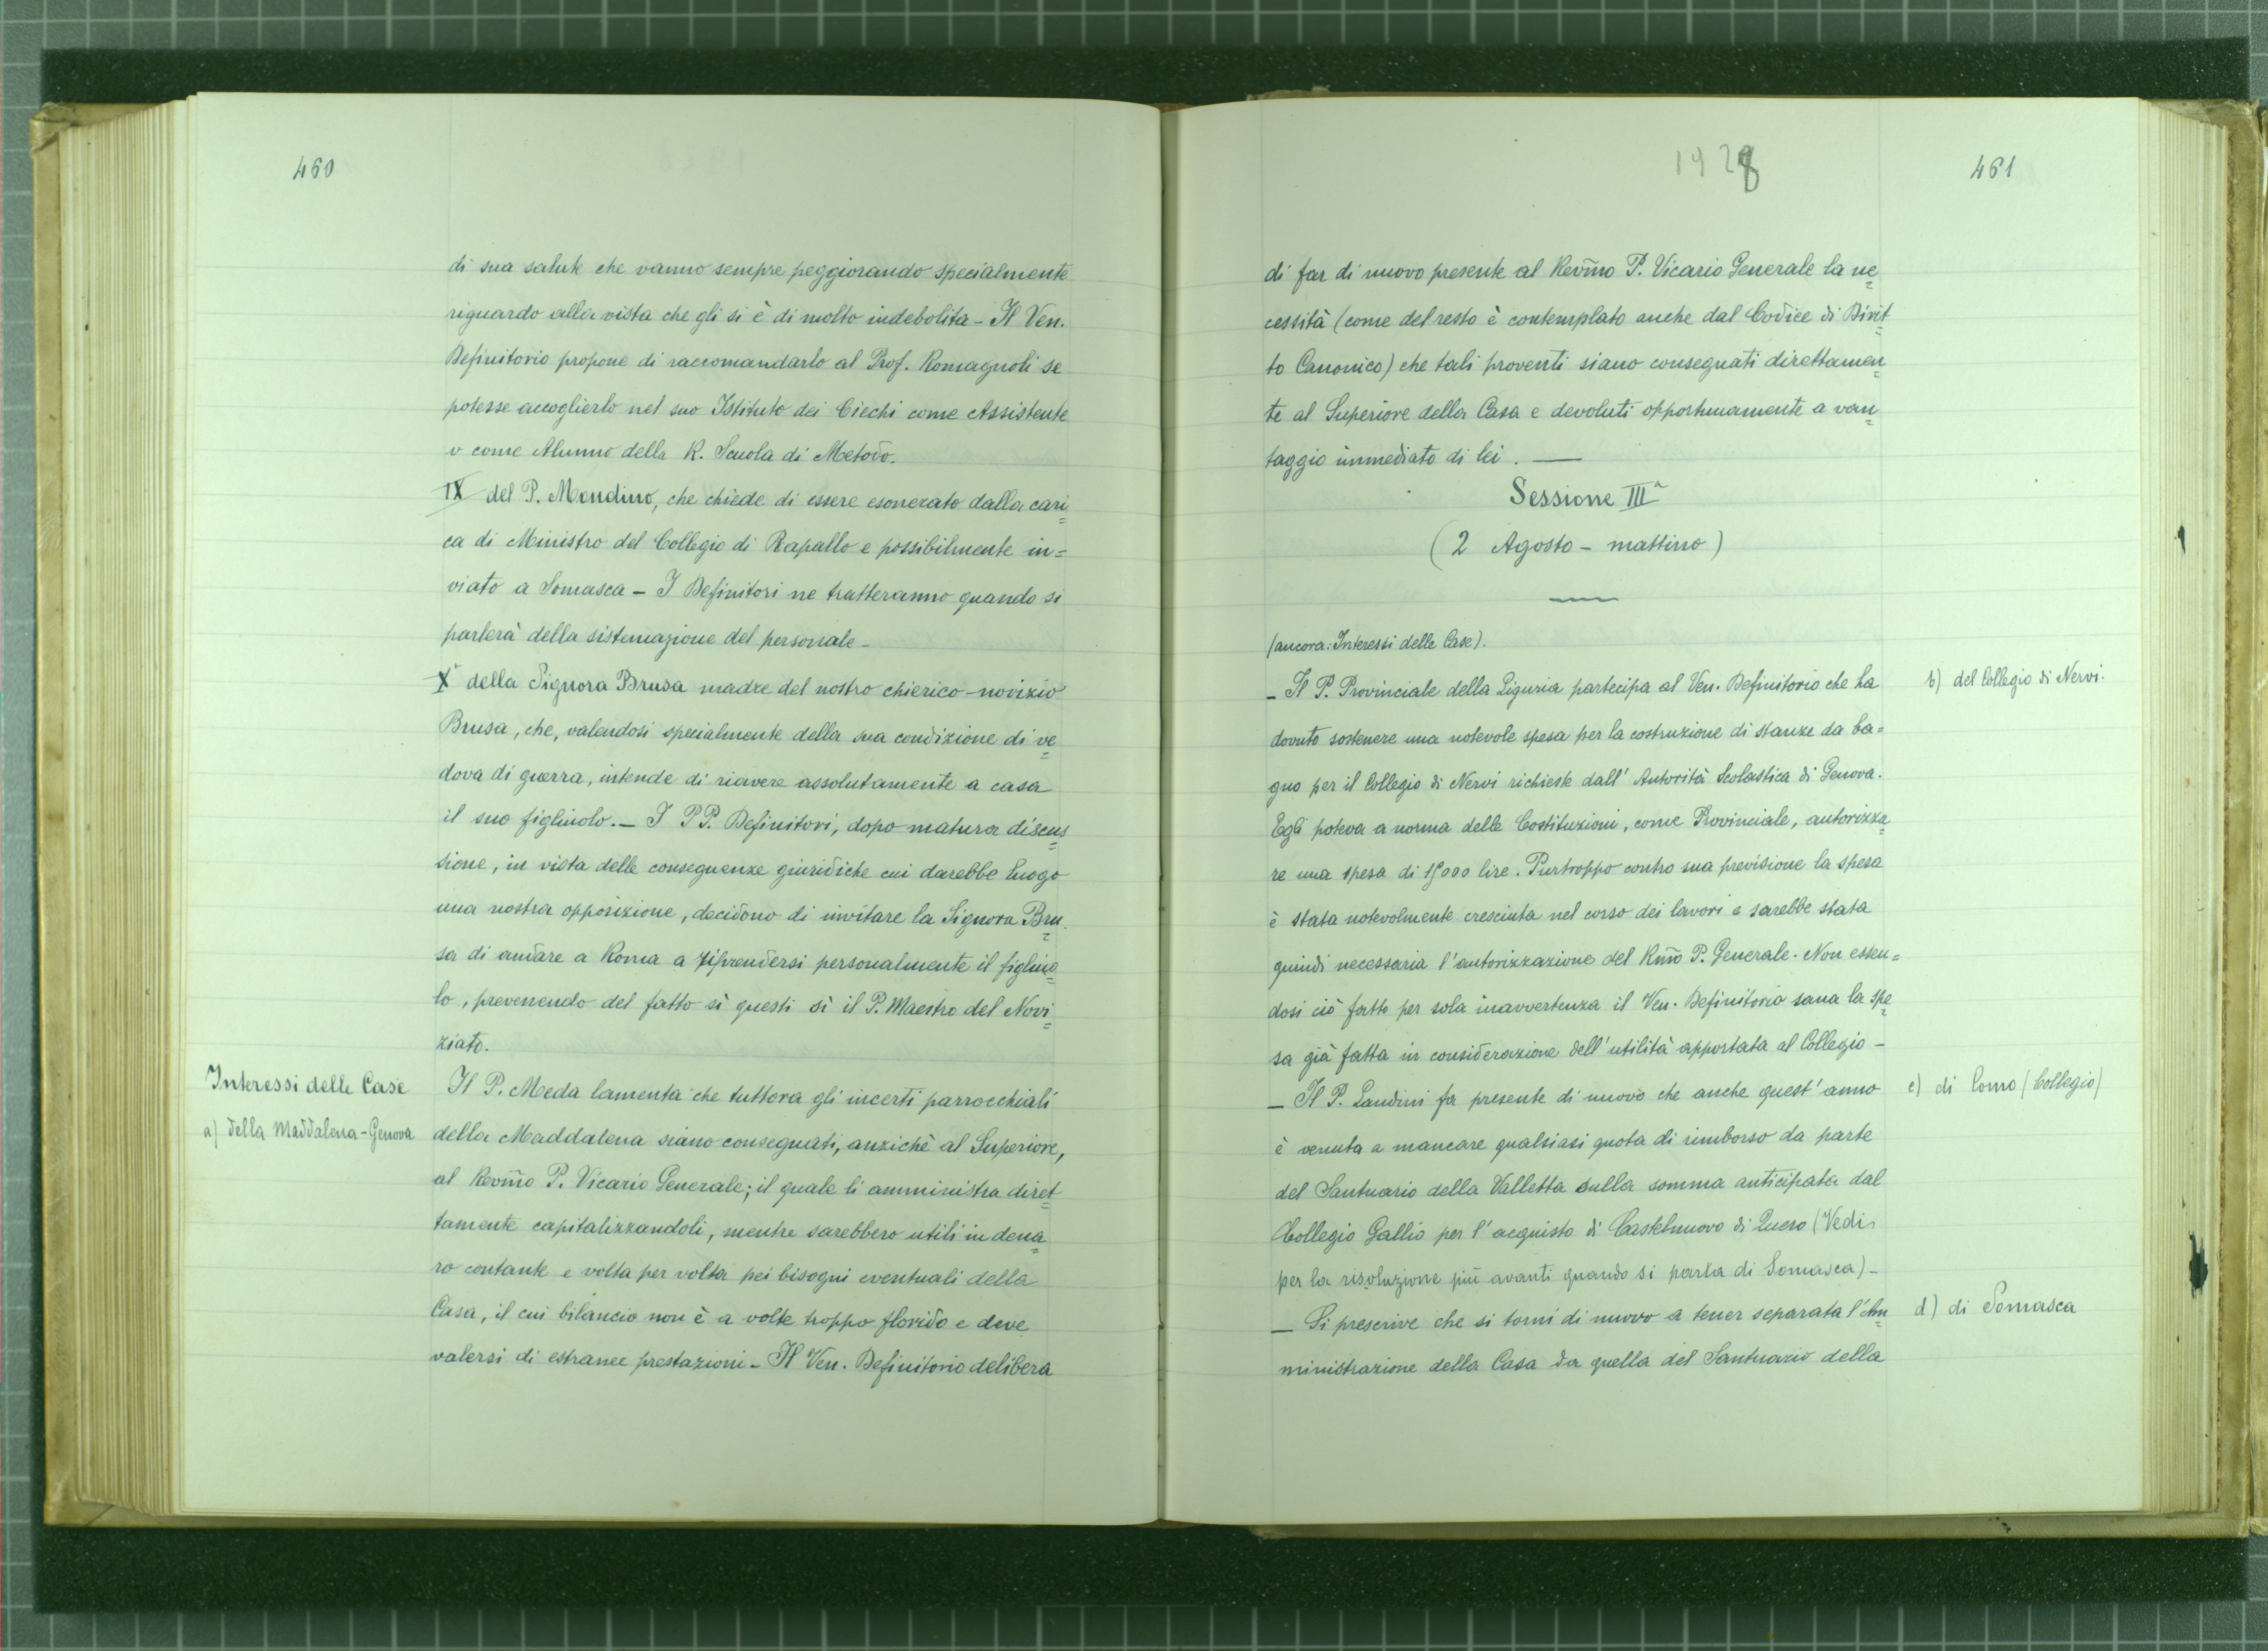 460
di sua salute che vanno sempre peggiorando specialmente
riguardo alla vista che gli si è di molto indebolita - Il Ven.
Definitorio propone di raccomandarlo al Prof. Romagnoli se
potesse accoglierlo nel suo Istituto dei Ciechi come Assistente
o come Alunno della R. Scuola di Metodo.
IX del P. Mondino, che chiede di essere esonerato dalla cari=
ca di Ministro del Collegio di Rapallo e possibilmente in=
viato a Somasca - I Definitori ne tratteranno quando si
parlerà della sistemazione del personale -
X della Signora Brusa madre del nostro chierico-novizio
Brusa, che, valendosi specialmente della sua condizione di ve=
dova di guerra, intende di riavere assolutamente a casa
il suo figliuolo. - I PP. Definitori, dopo matura discus=
sione, in vista delle conseguenze giuridiche cui darebbe luogo
una nostra opposizione, decidono di invitare la Signora Bru=
sa di andare a Roma a riprendersi personalmente il figliuo=
lo, prevenendo del fatto sì questi sì il P. Maestro del Novi=
ziato.
Interessi delle Case
a) della Maddalena-Genova
Il P. Meda lamenta che tuttora gli incerti parrocchiali
della Maddalena siano consegnati, anzichè al Superiore,
al Revm̃o P. Vicario Generale; il quale li amministra diret=
tamente capitalizzandoli, mentre sarebbero utili in dena=
ro contante e volta per volta pei bisogni eventuali della
Casa, il cui bilancio non è a volte troppo florido e deve
valersi di estranee prestazioni - Il Ven. Definitorio delibera
1928
461
di far di nuovo presente al Revm̃o P. Vicario Generale la ne=
cessità (come del resto è contemplato anche dal Codice di Dirit=
to Canonico) che tali proventi siano consegnati direttamen=
te al Superiore della Casa e devoluti opportunamente a van=
taggio immediato di lei. -
Sessione IIIª
(2 Agosto - mattino)
(ancora: Interessi delle Case).
b) del Collegio di Nervi.
- Il P. Provinciale della Liguria partecipa al Ven. Definitorio che ha
dovuto sostenere una notevole spesa per la costruzione di stanze da ba=
gno per il Collegio di Nervi richieste dall'Autorità Scolastica di Genova.
Egli poteva a norma delle Costituzioni, come Provinciale, autorizza=
re una spesa di lire. Purtroppo contro sua previsione la spesa
è stata notevolmente cresciuta nel corso dei lavori e sarebbe stata
quindi necessaria l'autorizzazione del Rm̃o P. Generale. Non essen=
dosi ciò fatto per sola inavvertenza il Ven. Definitorio sana la spe=
sa già fatta in considerazione dell'utilità apportata al Collegio -
c) di Como (Collegio)
- Il P. Landini fa presente di nuovo che anche quest'anno
è venuta a mancare qualsiasi quota di rimborso da parte
del Santuario della Valletta sulla somma anticipata dal
Collegio Gallio per l'acquisto di Castelnuovo di Quero (Vedi
per la risoluzione più avanti quando si parla di Somasca) -
d) di Somasca
- Si prescrive che si torni di nuovo a tener separata l'Am=
ministrazione della Casa da quella del Santuario della